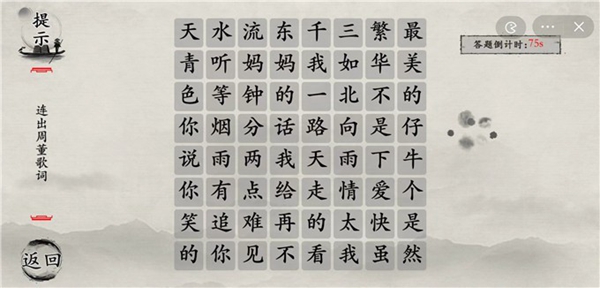 提示
答题倒计时：75s
连出周董歌词
天水流东千三繁最
青听妈妈我如华美
色等钟的一北不的
你烟分话路向是仔
说雨两我天雨下牛
你有点给走情爱个
笑追难再的太快是
的你见不看我虽然
返回